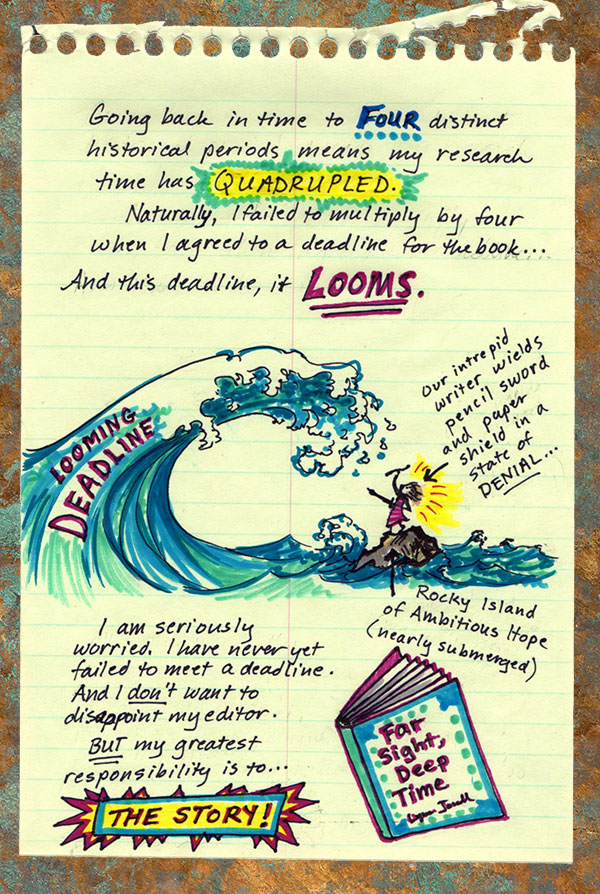 Going back in time to FOUR distinct
historical periods means my research
time has QUADRUPLED.
Naturally, I failed to multiply by four
when I agreed to a deadline for the book...
And this deadline, it LOOMS.
LOOMING
DEADLINE
Our intrepid
writer wields
pencil sword
and paper
shield in a
state of
DENIAL...
Rocky Island
of Ambitious Hope
(nearly submerged)
I am seriously
worried. I have never yet
failed to meet a deadline.
And I don't want to
disappoint my editor.
BUT my greatest
responsibility is to...
THE STORY!
Far
Sight,
Deep
Time